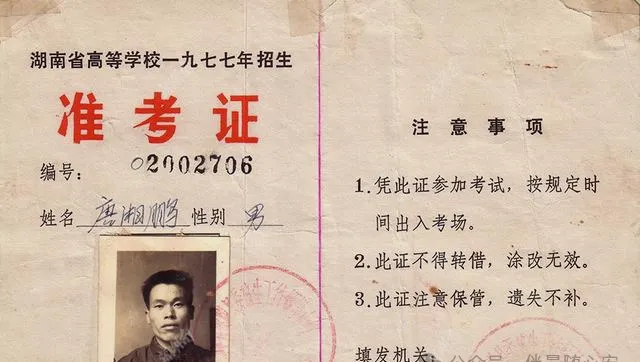 湖南省高等学校一九七七年招生
准考证
编号: 02002706
姓名 唐湘鹏 性别 男
注意事项
1.凭此证参加考试，按规定时
间出入考场。
2.此证不得转借，涂改无效。
3.此证注意保管，遗失不补。
填发机关